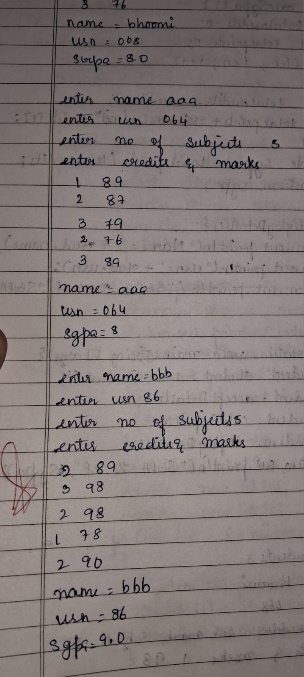 3 76
name = bhoomi
usn = 068
sgpa = 8.0
enter name aaa
enter usn 064
enter no of subjects 5
enter credits & marks
1 89
2 87
3 79
2 76
3 89
name = aaa
usn = 064
sgpa = 8
enter name = bbb
enter usn 86
enter no of subjects 5
enter credits & marks
2 89
3 98
2 98
1 78
2 90
name = bbb
usn = 86
sgpa = 9.0